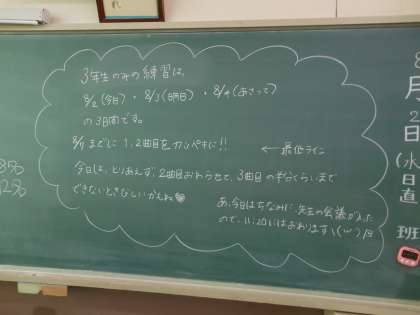 3年生のみの練習は、
8/2(今日)・8/3(明日)・8/4(あさって)
の3日間です。
8/4までに1、2曲目をカンペキに!! ← 最低ライン
今日は、とりあえず、2曲目おわらせて、3曲目の半分くらいまで
できないときびしいかもね♥
あ、今日はちなみに、先生の会議が入った
ので、11:20にはおわります\(^^)/
8
月
2
日
(水
日
直
班
8%
12%